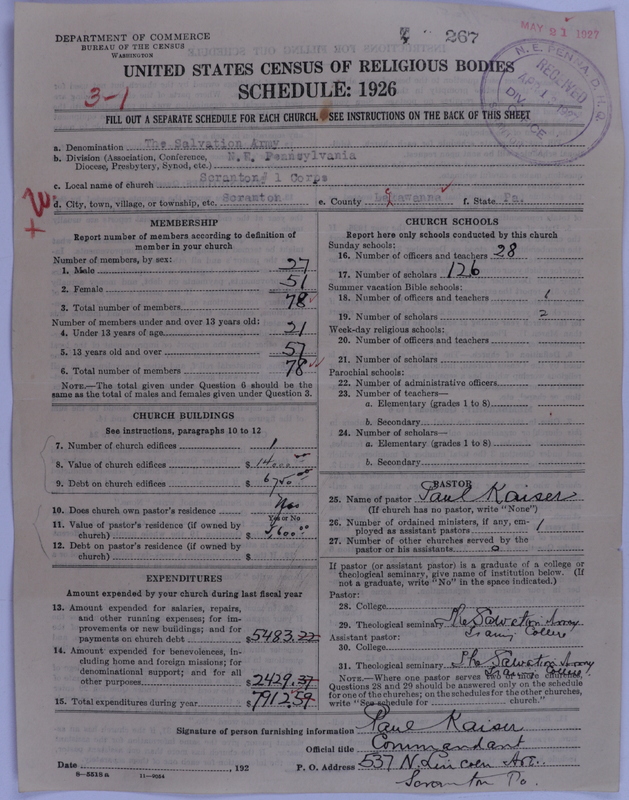 MAY 21 1927
267
DEPARTMENT OF COMMERCE
BUREAU OF THE CENSUS
WASHINGTON
N. E. PENNA. D. H. Q.
RECEIVED
UNITED STATES CENSUS OF RELIGIOUS BODIES
SCHEDULE: 1926
3-1
FILL OUT A SEPARATE SCHEDULE FOR EACH CHURCH. SEE INSTRUCTIONS ON THE BACK OF THIS SHEET
a. Denomination The Salvation Army
b. Division (Association, Conference, N.E. Pennsylvania
Diocese, Presbytery, Synod, etc.)
c. Local name of church Scranton, 1 Corps
d. City, town, village, or township, etc. Scranton e. County Lackawanna f. State Pa.
MEMBERSHIP
Report number of members according to definition of
member in your church
Number of members, by sex:
1. Male 27
2. Female 51
3. Total number of members 78
Number of members under and over 13 years old:
4. Under 13 years of age 21
5. 13 years old and over 57
6. Total number of members 78
NOTE.—The total given under Question 6 should be the
same as the total of males and females given under Question 3.
CHURCH BUILDINGS
See instructions, paragraphs 10 to 12
7. Number of church edifices 1
8. Value of church edifices $ 14000.00
9. Debt on church edifices $ 6750.00
10. Does church own pastor's residence Yes
Yes or No
11. Value of pastor's residence (if owned by
church) $ 5600.00
12. Debt on pastor's residence (if owned by
church) $
EXPENDITURES
Amount expended by your church during last fiscal year
13. Amount expended for salaries, repairs,
and other running expenses; for im-
provements or new buildings; and for
payments on church debt $ 5483.22
14. Amount expended for benevolences, in-
cluding home and foreign missions; for
denominational support; and for all
other purposes $ 2429.37
15. Total expenditures during year $ 7912.59
CHURCH SCHOOLS
Report here only schools conducted by this church
Sunday schools:
16. Number of officers and teachers 28
17. Number of scholars 126
Summer vacation Bible schools:
18. Number of officers and teachers 1
19. Number of scholars 2
Week-day religious schools:
20. Number of officers and teachers
21. Number of scholars
Parochial schools:
22. Number of administrative officers
23. Number of teachers—
a. Elementary (grades 1 to 8)
b. Secondary
24. Number of scholars—
a. Elementary (grades 1 to 8)
b. Secondary
PASTOR
25. Name of pastor Paul Kaiser
(If church has no pastor, write "None")
26. Number of ordained ministers, if any, em-
ployed as assistant pastors 1
27. Number of other churches served by the
pastor or his assistants 0
If pastor (or assistant pastor) is a graduate of a college or
theological seminary, give name of institution below. (If
not a graduate, write "No" in the space indicated.)
Pastor:
28. College
29. Theological seminary The Salvation Army
Training College
Assistant pastor:
30. College
31. Theological seminary The Salvation Army
Training College
NOTE.—Where one pastor serves two or more churches,
Questions 28 and 29 should be answered only on the schedule
for one of the churches; on the schedules for the other churches,
write "See schedule for church."
Signature of person furnishing information Paul Kaiser
Official title Commandant
Date , 192 P. O. Address 537 N. Lincoln Ave.
Scranton Pa.
8—5518a 11—9054